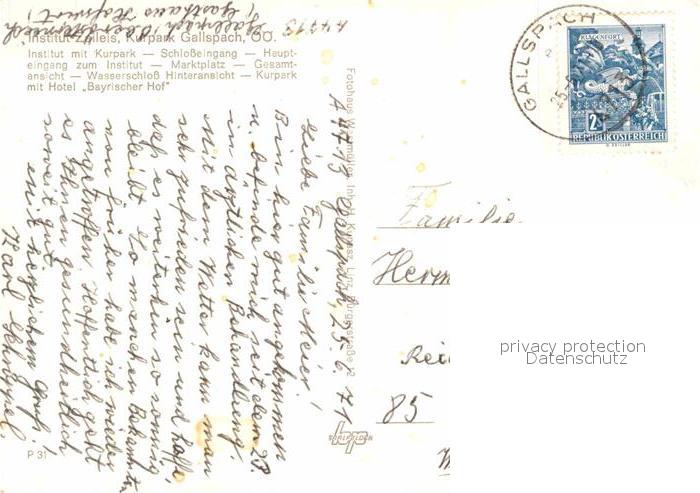 A 4713
Gallspach Oberösterreich
(Gasthaus Hofwirt)
Institut Zeileis, Kurpark Gallspach, OÖ.
Institut mit Kurpark — Schloßeingang — Haupt-
eingang zum Institut — Marktplatz — Gesamt-
ansicht — Wasserschloß Hinteransicht — Kurpark
mit Hotel „Bayrischer Hof"
A 4713 Gallspach, 25.6.71
Liebe Familie Meier!
Bin hier gut angekommen
u. befinde mich seit dem 23.
in ärztlicher Behandlung.
Mit dem Wetter kann man
sehr zufrieden sein und hoffe,
daß es weiterhin so sonnig
bleibt. So manchen Bekannten
von früher habe ich wieder
angetroffen. Hoffentlich geht
es Ihnen gesundheitlich
soweit gut.
mit herzlichem Gruß!
Karl
P 31
Fotohaus Inh. H. Linz,
GALLSPACH
KLAGENFURT
2
REPUBLIK ÖSTERREICH
Familie
Herm
Rei
85
privacy protection
Datenschutz